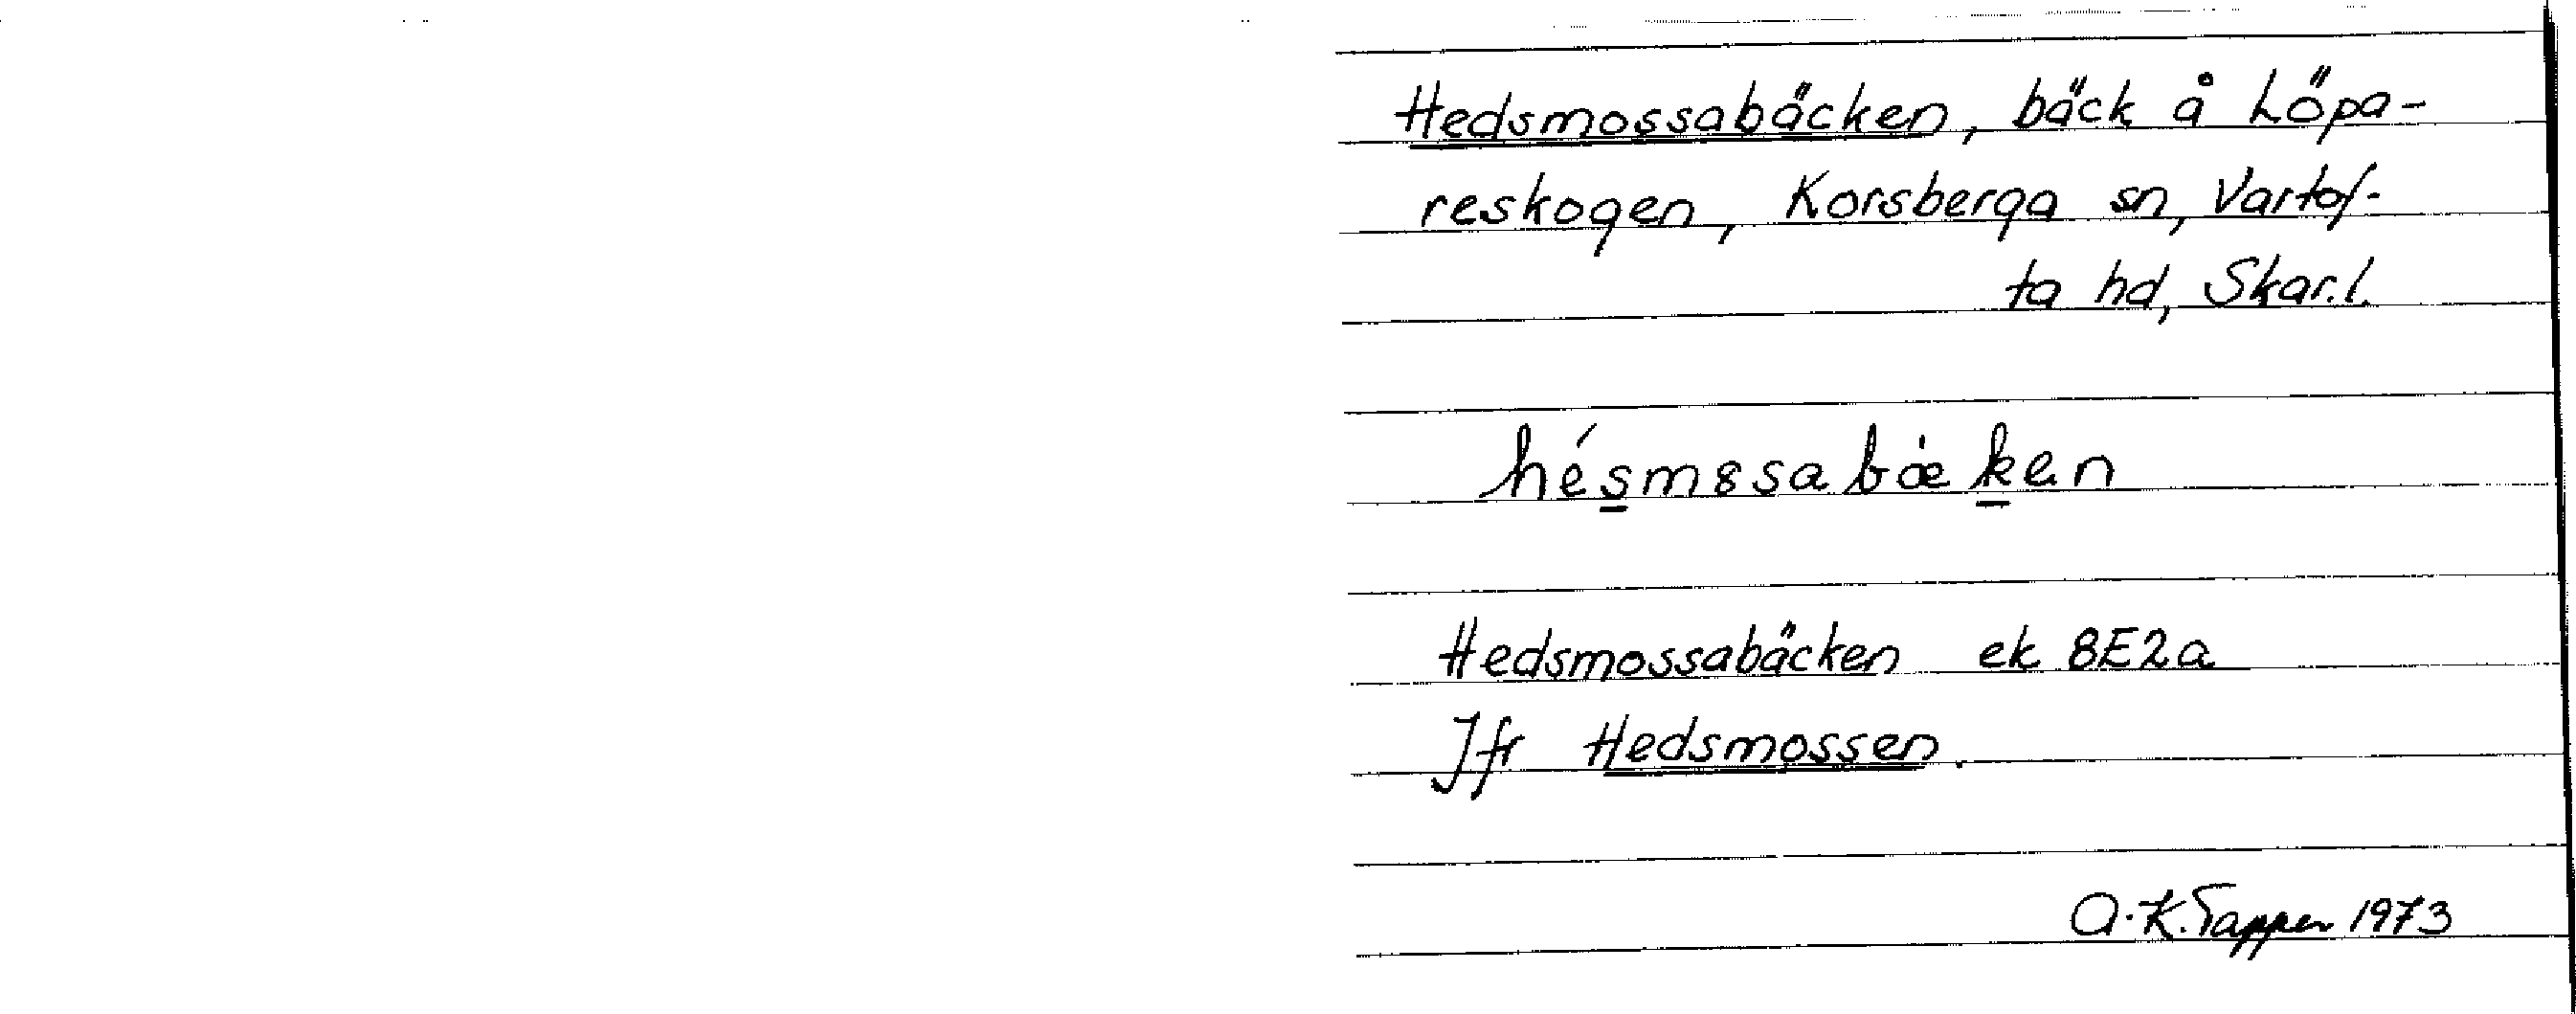 Hedsmossabäcken, bäck å Löpa-
reskogen, Korsberga sn, Vartof-
ta hd, Skar.l.
hésmɞsabæ̀ken
Hedsmossabäcken ek 8E2a
Jfr Hedsmossen.
A.K. Tapper 1973